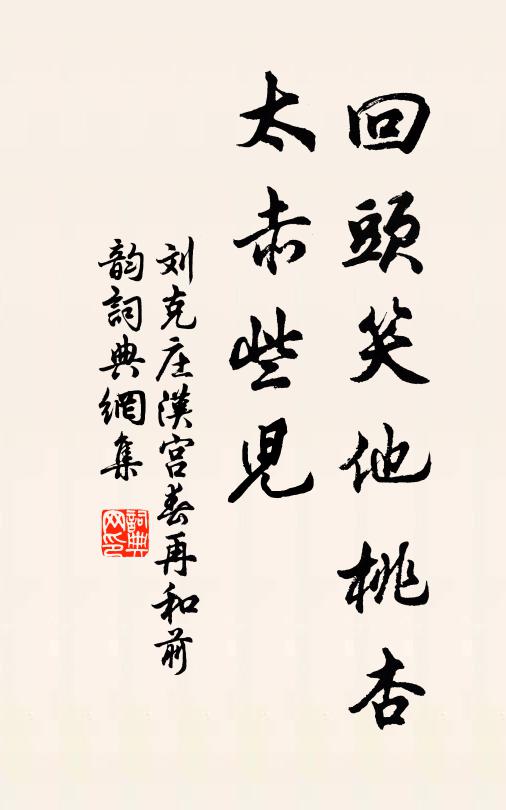 回頭笑他桃杏
太赤些兒
刘克庄漢宮春再和前
韵詞典網集
詞典
网印